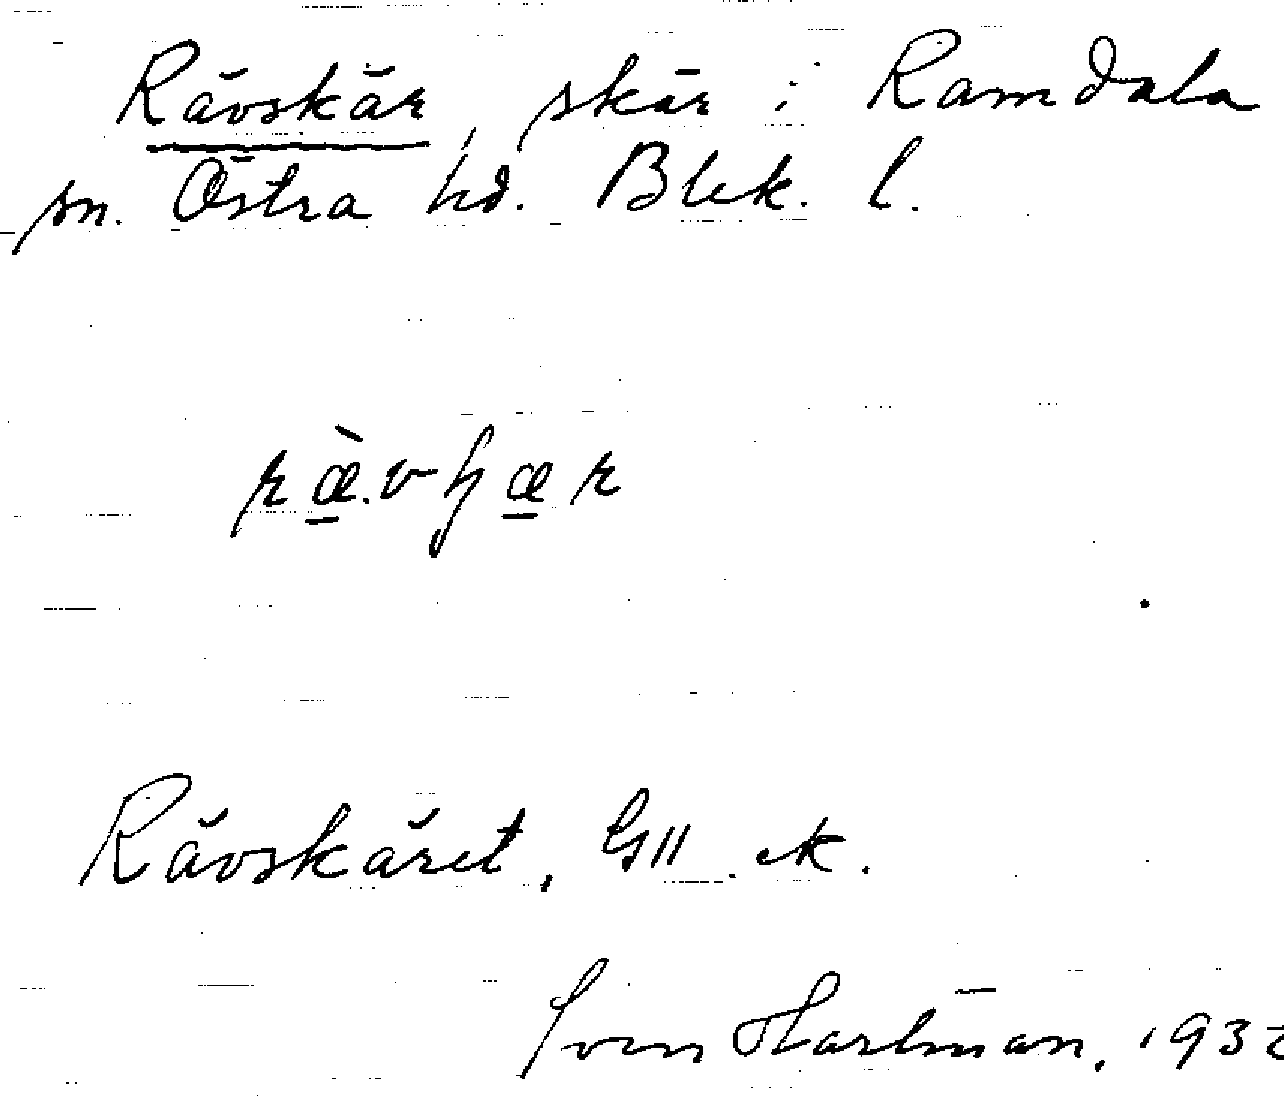 Rävskär, skär i Ramdala
sn. Östra hd. Blek. l.
Rävskäret, GII ek.
Sven Hartman, 1932